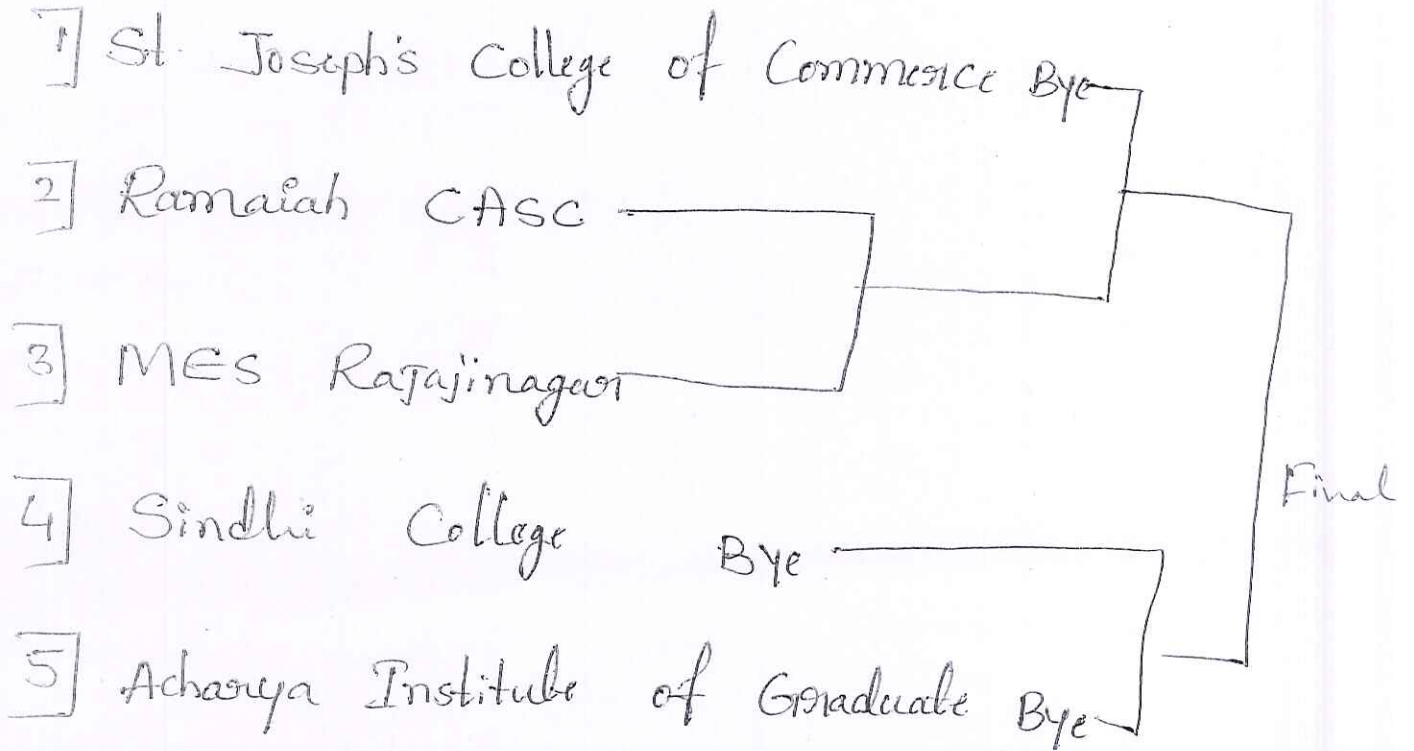 1] St. Joseph's College of Commerce Bye
2] Ramaiah CASC
3] MES Rajajinagar
4] Sindhi College Bye
Final
5] Acharya Institute of Graduate Bye